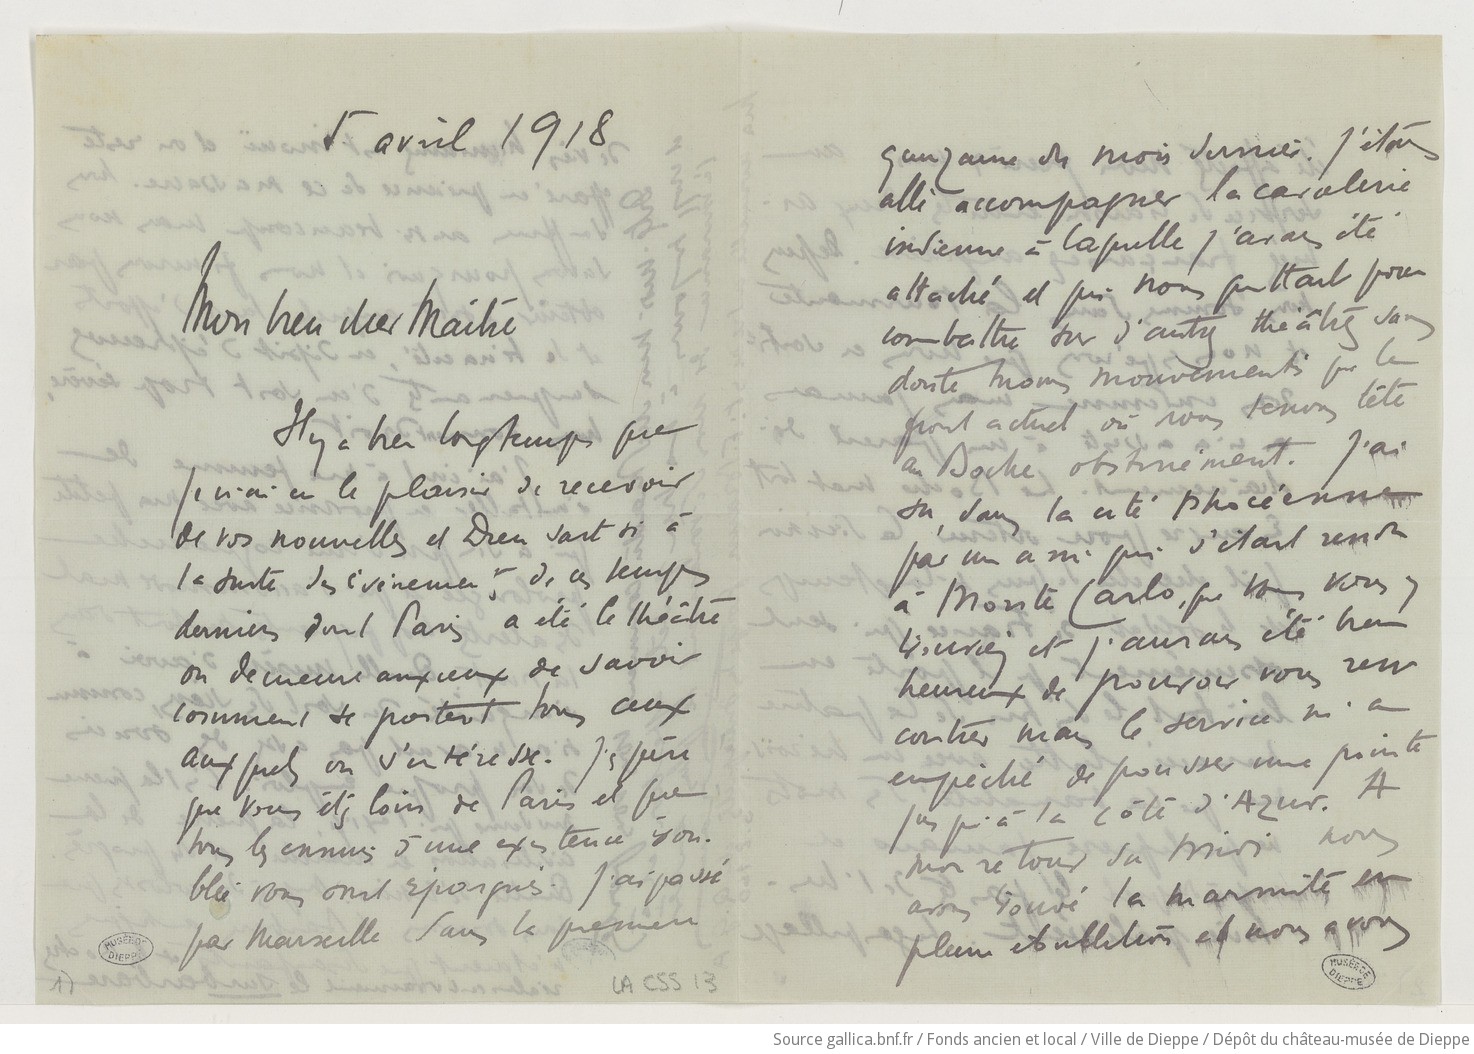 5 avril 1918
Mon bien cher Maître
Il y a bien longtemps que
je n'ai eu le plaisir de recevoir
de vos nouvelles et Dieu sait si à
la suite des évènements de ces temps
derniers dont Paris a été le théâtre
on demeure anxieux de savoir
comment se portent tous ceux
auxquels on s'intéresse. J'espère
que vous étiez loin de Paris et que
tous les ennuis d'une existence trou-
blée vous sont épargnés. J'ai passé
par Marseille dans la première
quinzaine du mois dernier. J'étais
allé accompagner la cavalerie
indienne à laquelle j'avais été
attaché et qui nous quittait pour
combattre sur d'autres théâtres sans
doute moins mouvementés que le
front actuel où nous tenons tête
au Boche obstinément. J'ai
su, dans la cité phocéenne
par un ami qui s'était rendu
à Monte Carlo, que vous vous y
trouviez et j'aurais été bien
heureux de pouvoir vous ren
contrer mais le service m'a
empêché de pousser une pointe
jusqu'à la côte d'Azur. A
mon retour du midi nous
avons trouvé la marmite en
pleine ébullition et nous avons
MUSÉE DE DIEPPE
MUSÉE DE DIEPPE
1)
LA CSS 13
Source gallica.bnf.fr / Fonds ancien et local / Ville de Dieppe / Dépôt du château-musée de Dieppe